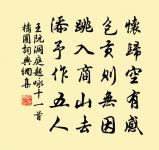 懷歸空有感
包貢則無因
跳入商山去
添予作五人
王阮洞庭題詠十一首
橘園詞典網集